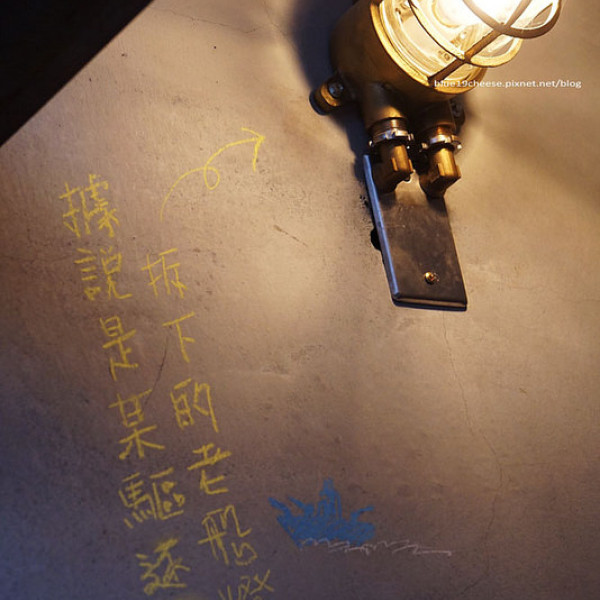 據說是某驅逐
拆下的老船燈
blue19cheese.pixnet.net/blog